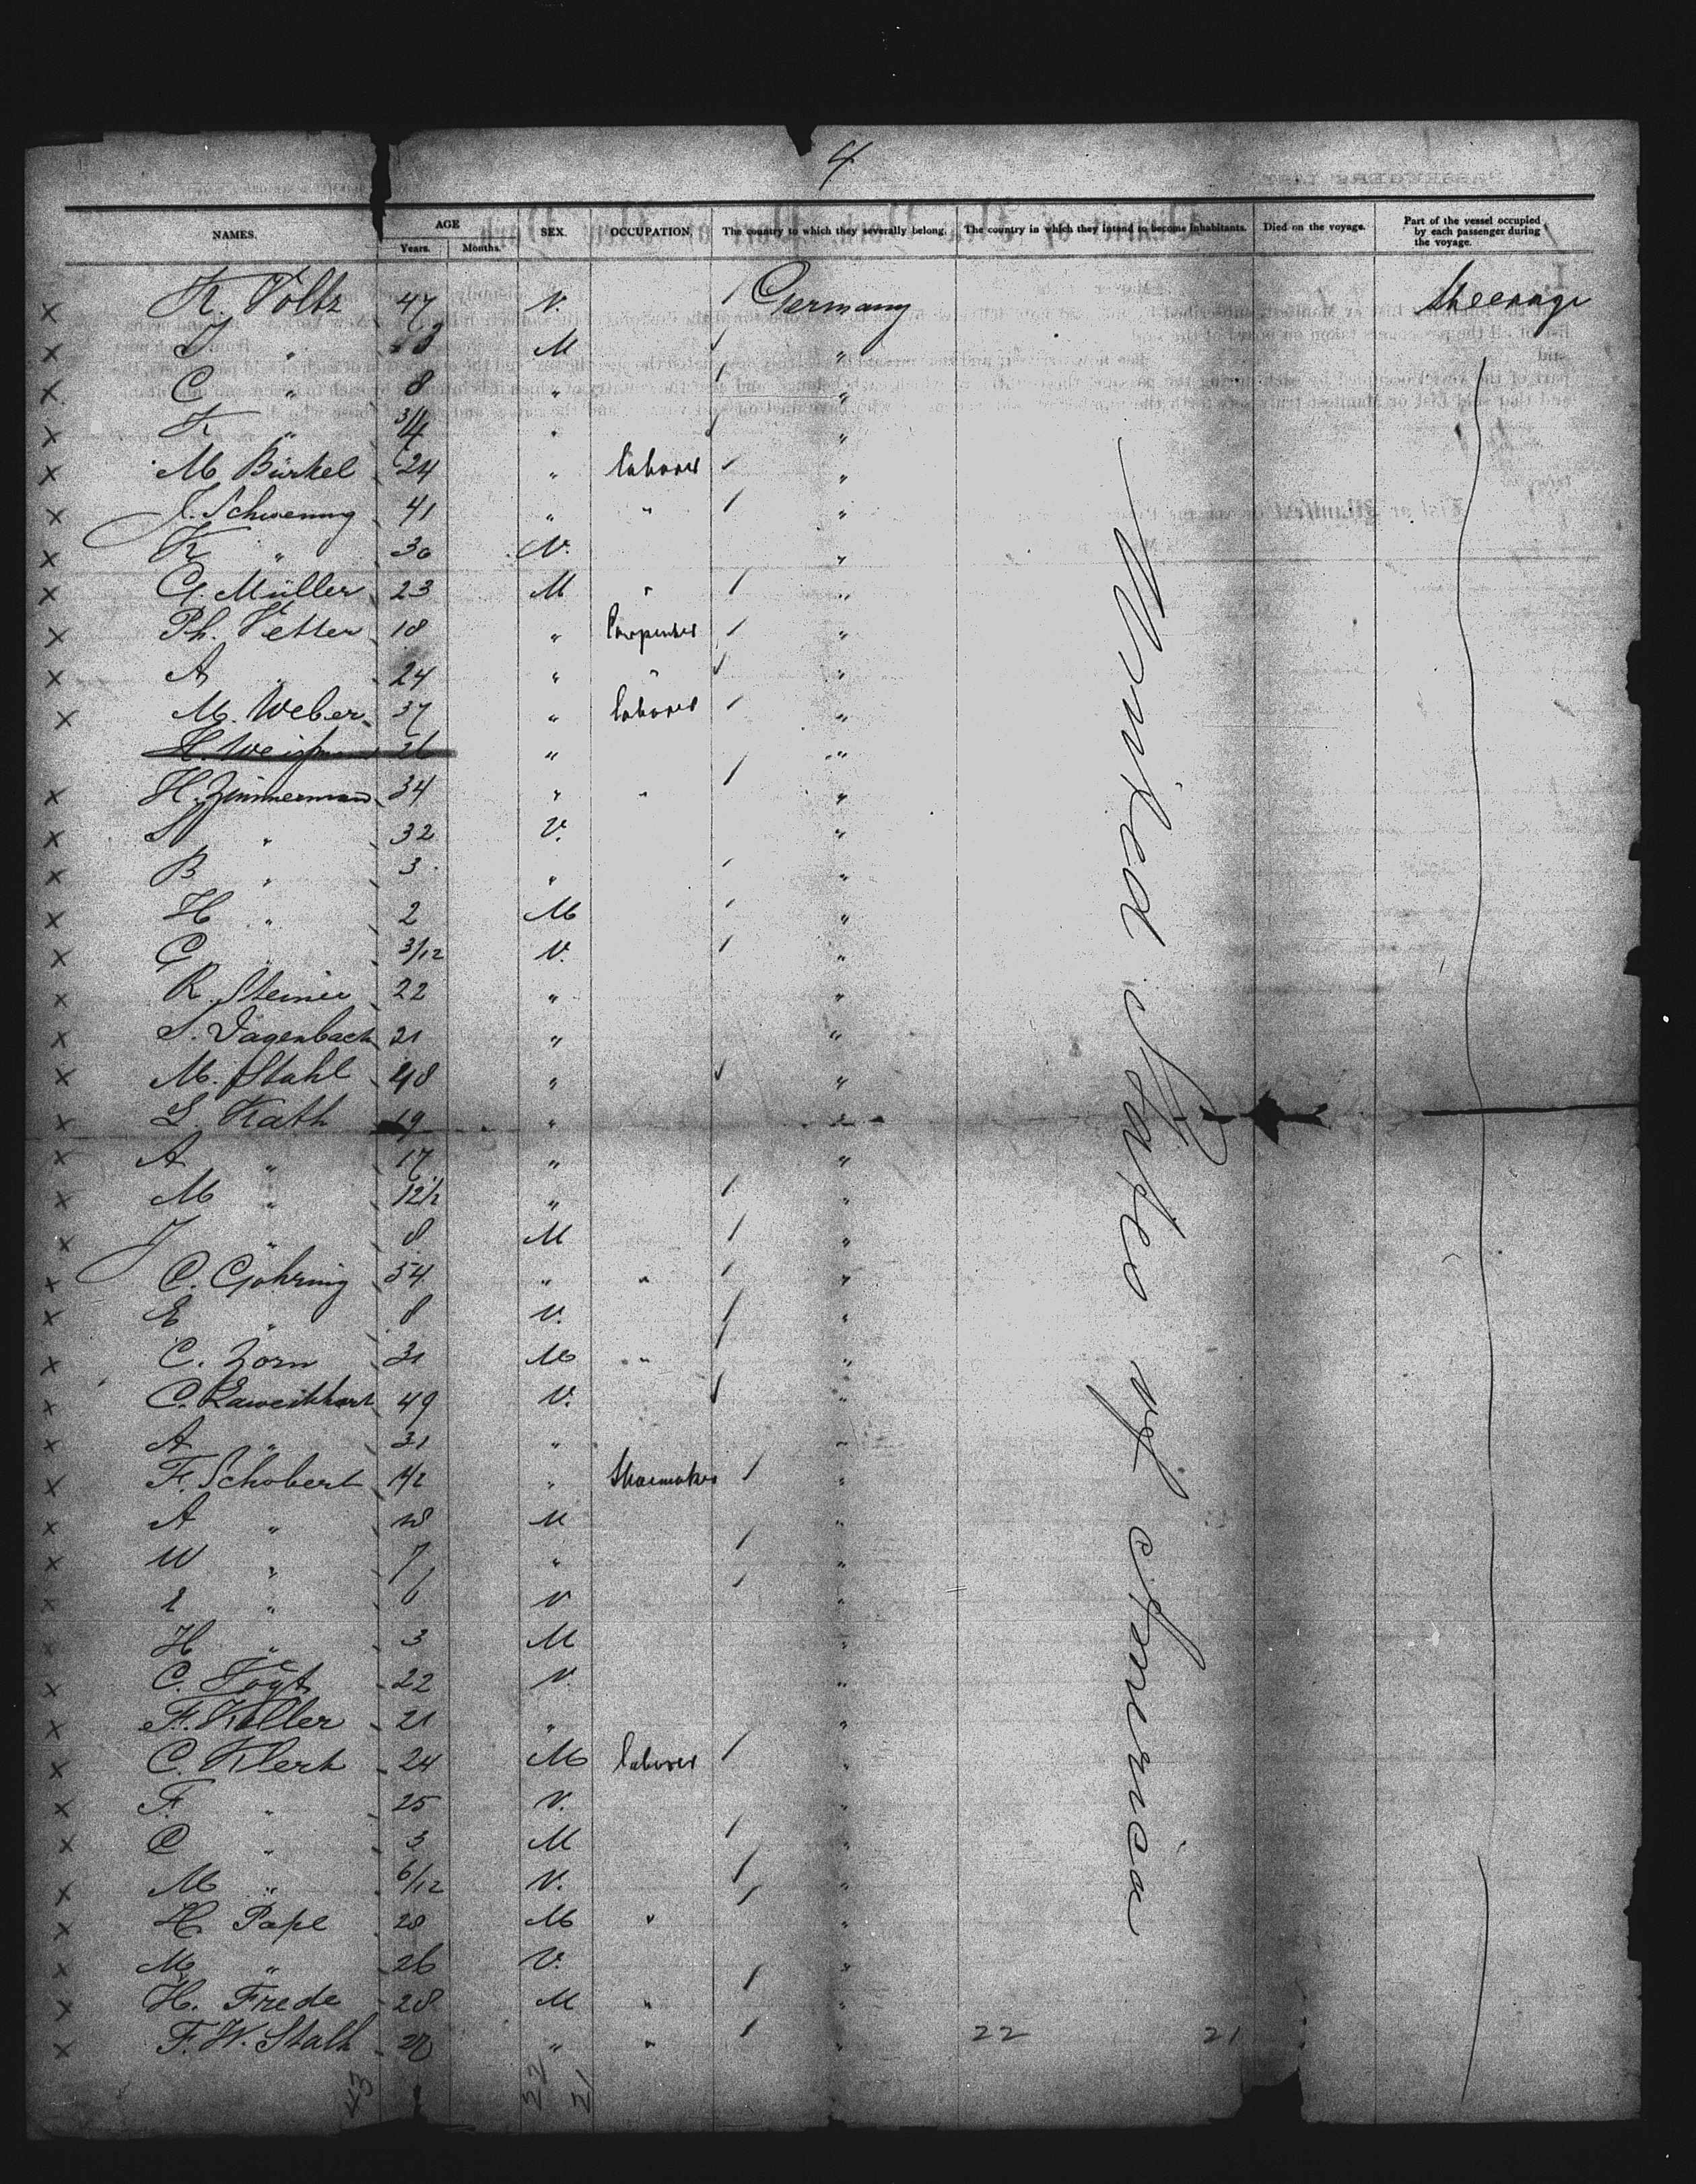 4
NAMES. AGE Years. Months. SEX. OCCUPATION. The country to which they severally belong. The country in which they intend to become inhabitants. Died on the voyage. Part of the vessel occupied by each passenger during the voyage.
K. Voltz 47 V. Germany Steerage
J " M "
C " 8 " "
K " 3/4 " "
M Bürkel 24 " laborer "
J. Schwenung 41 " " "
K " 30 V. "
G. Müller 23 M " "
Ph. Vetter 18 " Carpenter "
A " 24 " " "
M. Weber 37 " laborer "
26 " "
H. Zimmerman 34 " " "
S " 32 V. "
B " 3 " "
H " 2 M "
G " 3/12 V. "
R. Steiner 22 " "
S. Dagenbach 21 " "
M. Stahl 48 " "
L. Kath 19 " "
A " 17 " "
M " 12 1/2 " "
J " 8 M "
C. Göhring 54 " " "
E " 8 V. "
C. Zorn 31 M " "
C. 49 V. "
A " 31 " "
F. Schobert 42 " Shoemaker "
A " M "
W " 7 " "
E " 6 V "
H " 3 M "
C. Vogt 22 V. "
F. Koller 21 " "
C. Klerk 24 M laborer "
F. " 25 V. "
C " 3 M "
M " 6/12 V. "
H. Pape 28 M " "
M " 26 V. "
H. Frede 28 M " "
F. W. Stalk " " "
United States of America
22 21
43 22 21